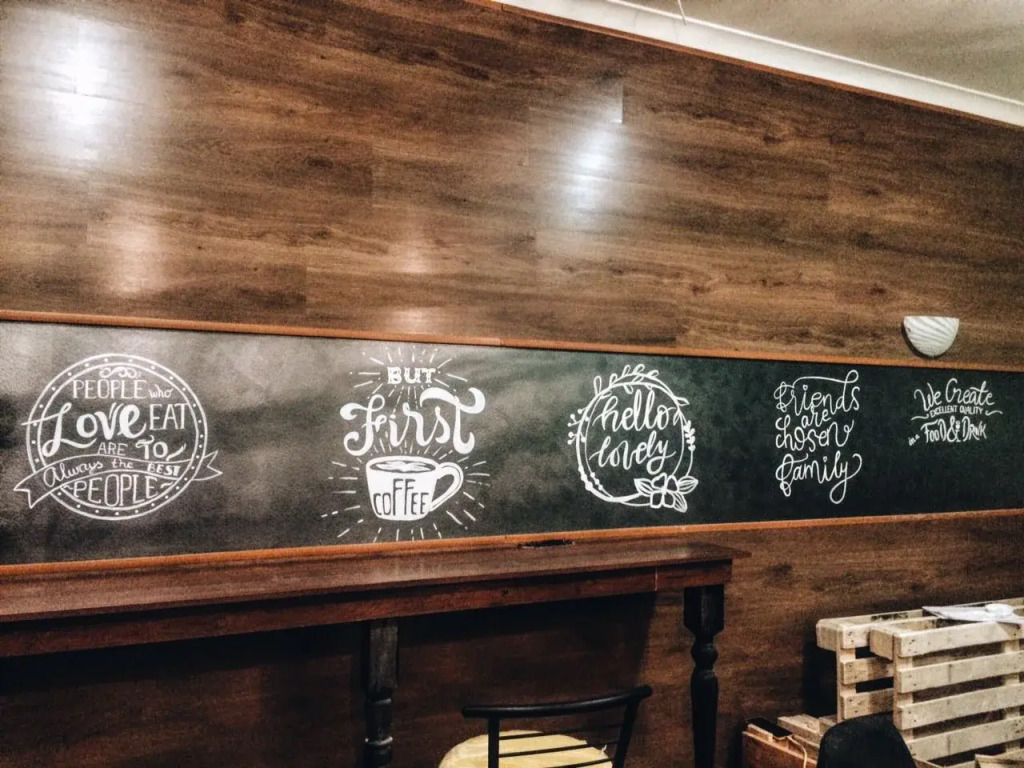 PEOPLE who
Love EAT
ARE TO
Always the BEST
PEOPLE
BUT
First
COFFEE
hello
lovely
friends
are
chosen
family
We Create
EXCELLENT QUALITY
in a FOOD & DRINK